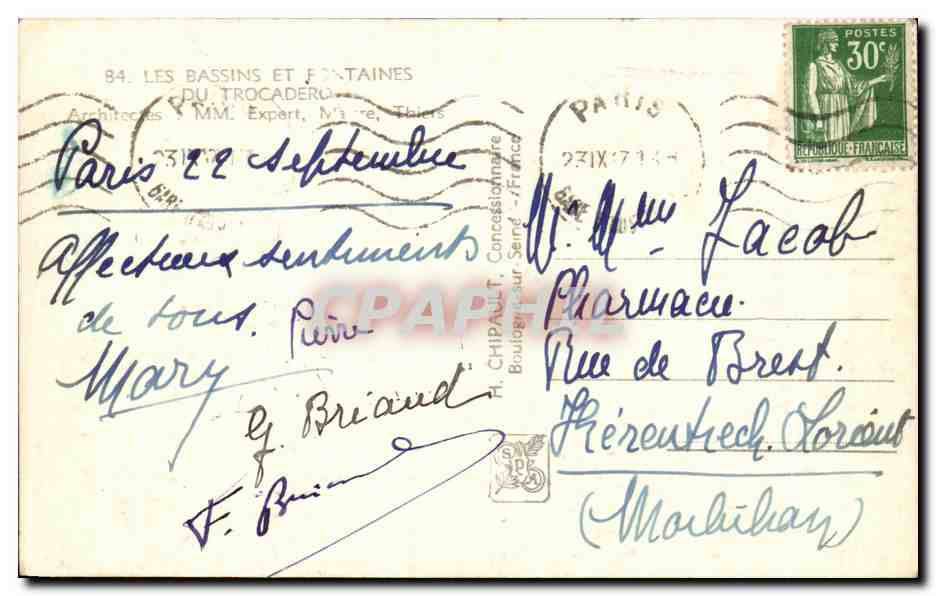 84. LES BASSINS ET FONTAINES
DU TROCADERO
Architectes : MM. Expert, Maitre, Thiers
Paris 22 septembre
Affectueux sentiments
de tous. Pierre
Mary
G. Briand
F. Briand
H. CHIPAULT, Concessionnaire
Boulogne-sur-Seine - France
SPA
PARIS
23 IX
GARE
POSTES
30c
REPUBLIQUE-FRANÇAISE
M. Mme Jacob
Pharmacie.
Rue de Brest.
Kérentrech. Lorient
(Morbihan)
CPAPHIL